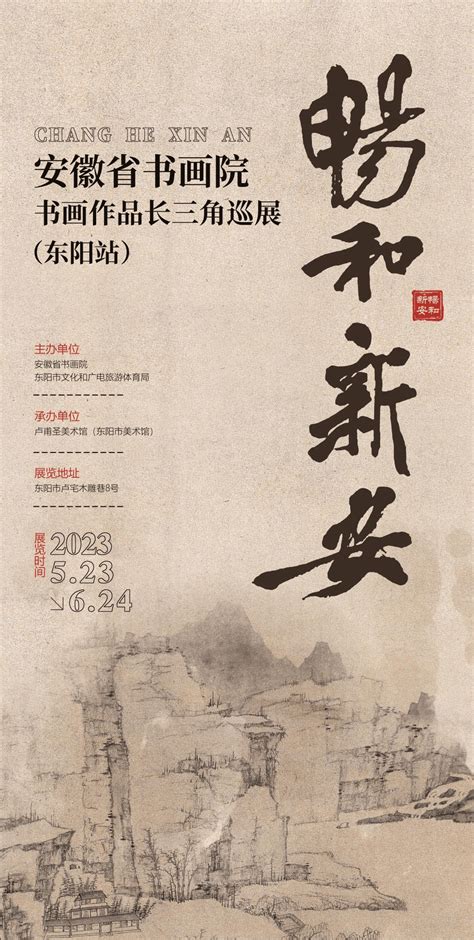 暢和新安
新安
暢和
CHANG HE XIN AN
安徽省书画院
书画作品长三角巡展
(东阳站)
主办单位
安徽省书画院
东阳市文化和广电旅游体育局
承办单位
卢甫圣美术馆（东阳市美术馆）
展览地址
东阳市卢宅木雕巷8号
展览时间
2023
5.23
↘6.24